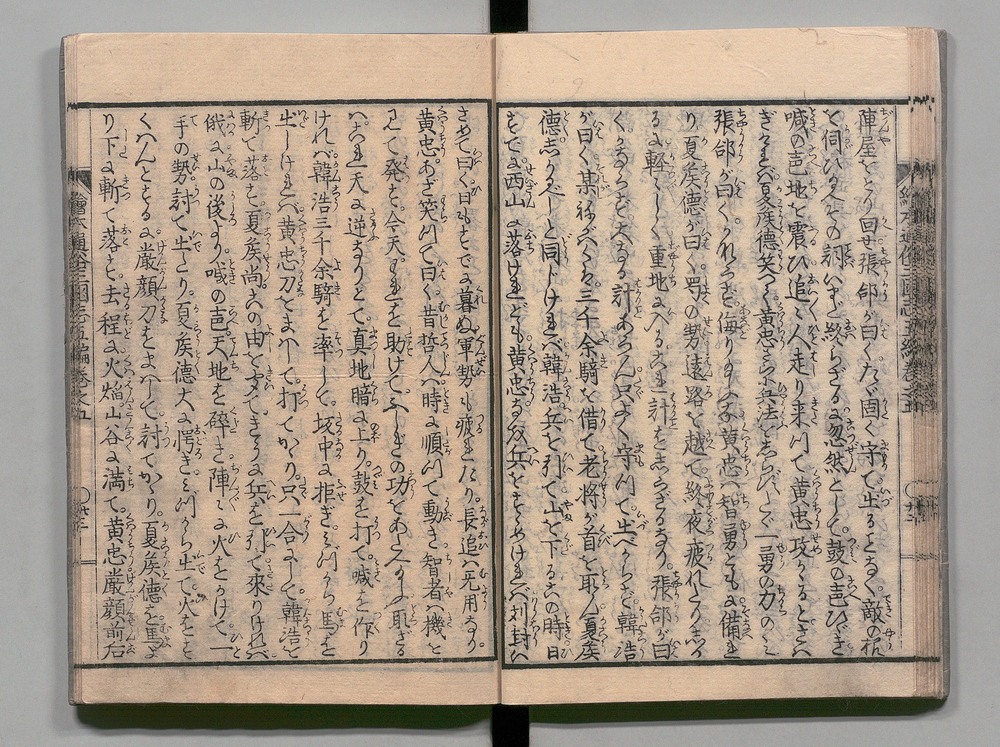 繪本通俗三國志五編卷之五
陣屋をとり回せ張郃が曰くたゞ固く守て出ることなく敵の折
を伺ひ玉へとその詞いまだ終らざるに忽然として鼓の声ひゞき
喊の声地を震ひ追々人走り来りて黄忠攻かゝるとさハ
ぎけれバ夏侯徳笑て曰く黄忠さらに兵法をしらずたゞ一勇の力のミ
張郃が曰くかれらを侮り玉ふな黄忠ハ智勇ともに備れ
り夏侯徳が曰く蜀の勢遠路を越て終夜疲れたりしか
るに軽々しく重地に入るこれ計をしらざるなり張郃が曰
くしからず大なる計あらん只よく守つて出べからず韓浩
が曰く某ねがハくハ三千余騎を借て老将が首を取ん夏侯
徳志かるべしと同じけれバ韓浩兵を引て山を下るこの時日
すでに西山に落けれども黄忠なを兵をすゝめけれバ刘封い
さめて曰く日もすでに暮ぬ軍勢も疲れたり長追ハ无用なり
黄忠あざ笑つて曰く昔哲人ハ時に順つて動き智者ハ機を
見て発す今天われを助けてふしぎの功をあたへ玉ふ取ざる
ハこれ天に逆なりとて真地暗に上り鼓を打て喊を作り
けれバ韓浩三千余騎を率して坂中に拒ぎミづから馬を
出しけれバ黄忠刀をまハして打てかゝり只一合にして韓浩を
斬て落す夏侯尚この由をきゝ兵を引て來りけれバ
俄に山の後より喊の声天地を碎き陣々に火をかけて一
手の勢討て出たり夏侯徳大に愕きミづから出て火をす
くハんとするに嚴顔刀をまハして討てかゝり夏侯徳を馬よ
り下に斬て落す去程に火焔山谷に満て黄忠嚴顔前后
繪本通俗三國志五編卷之五